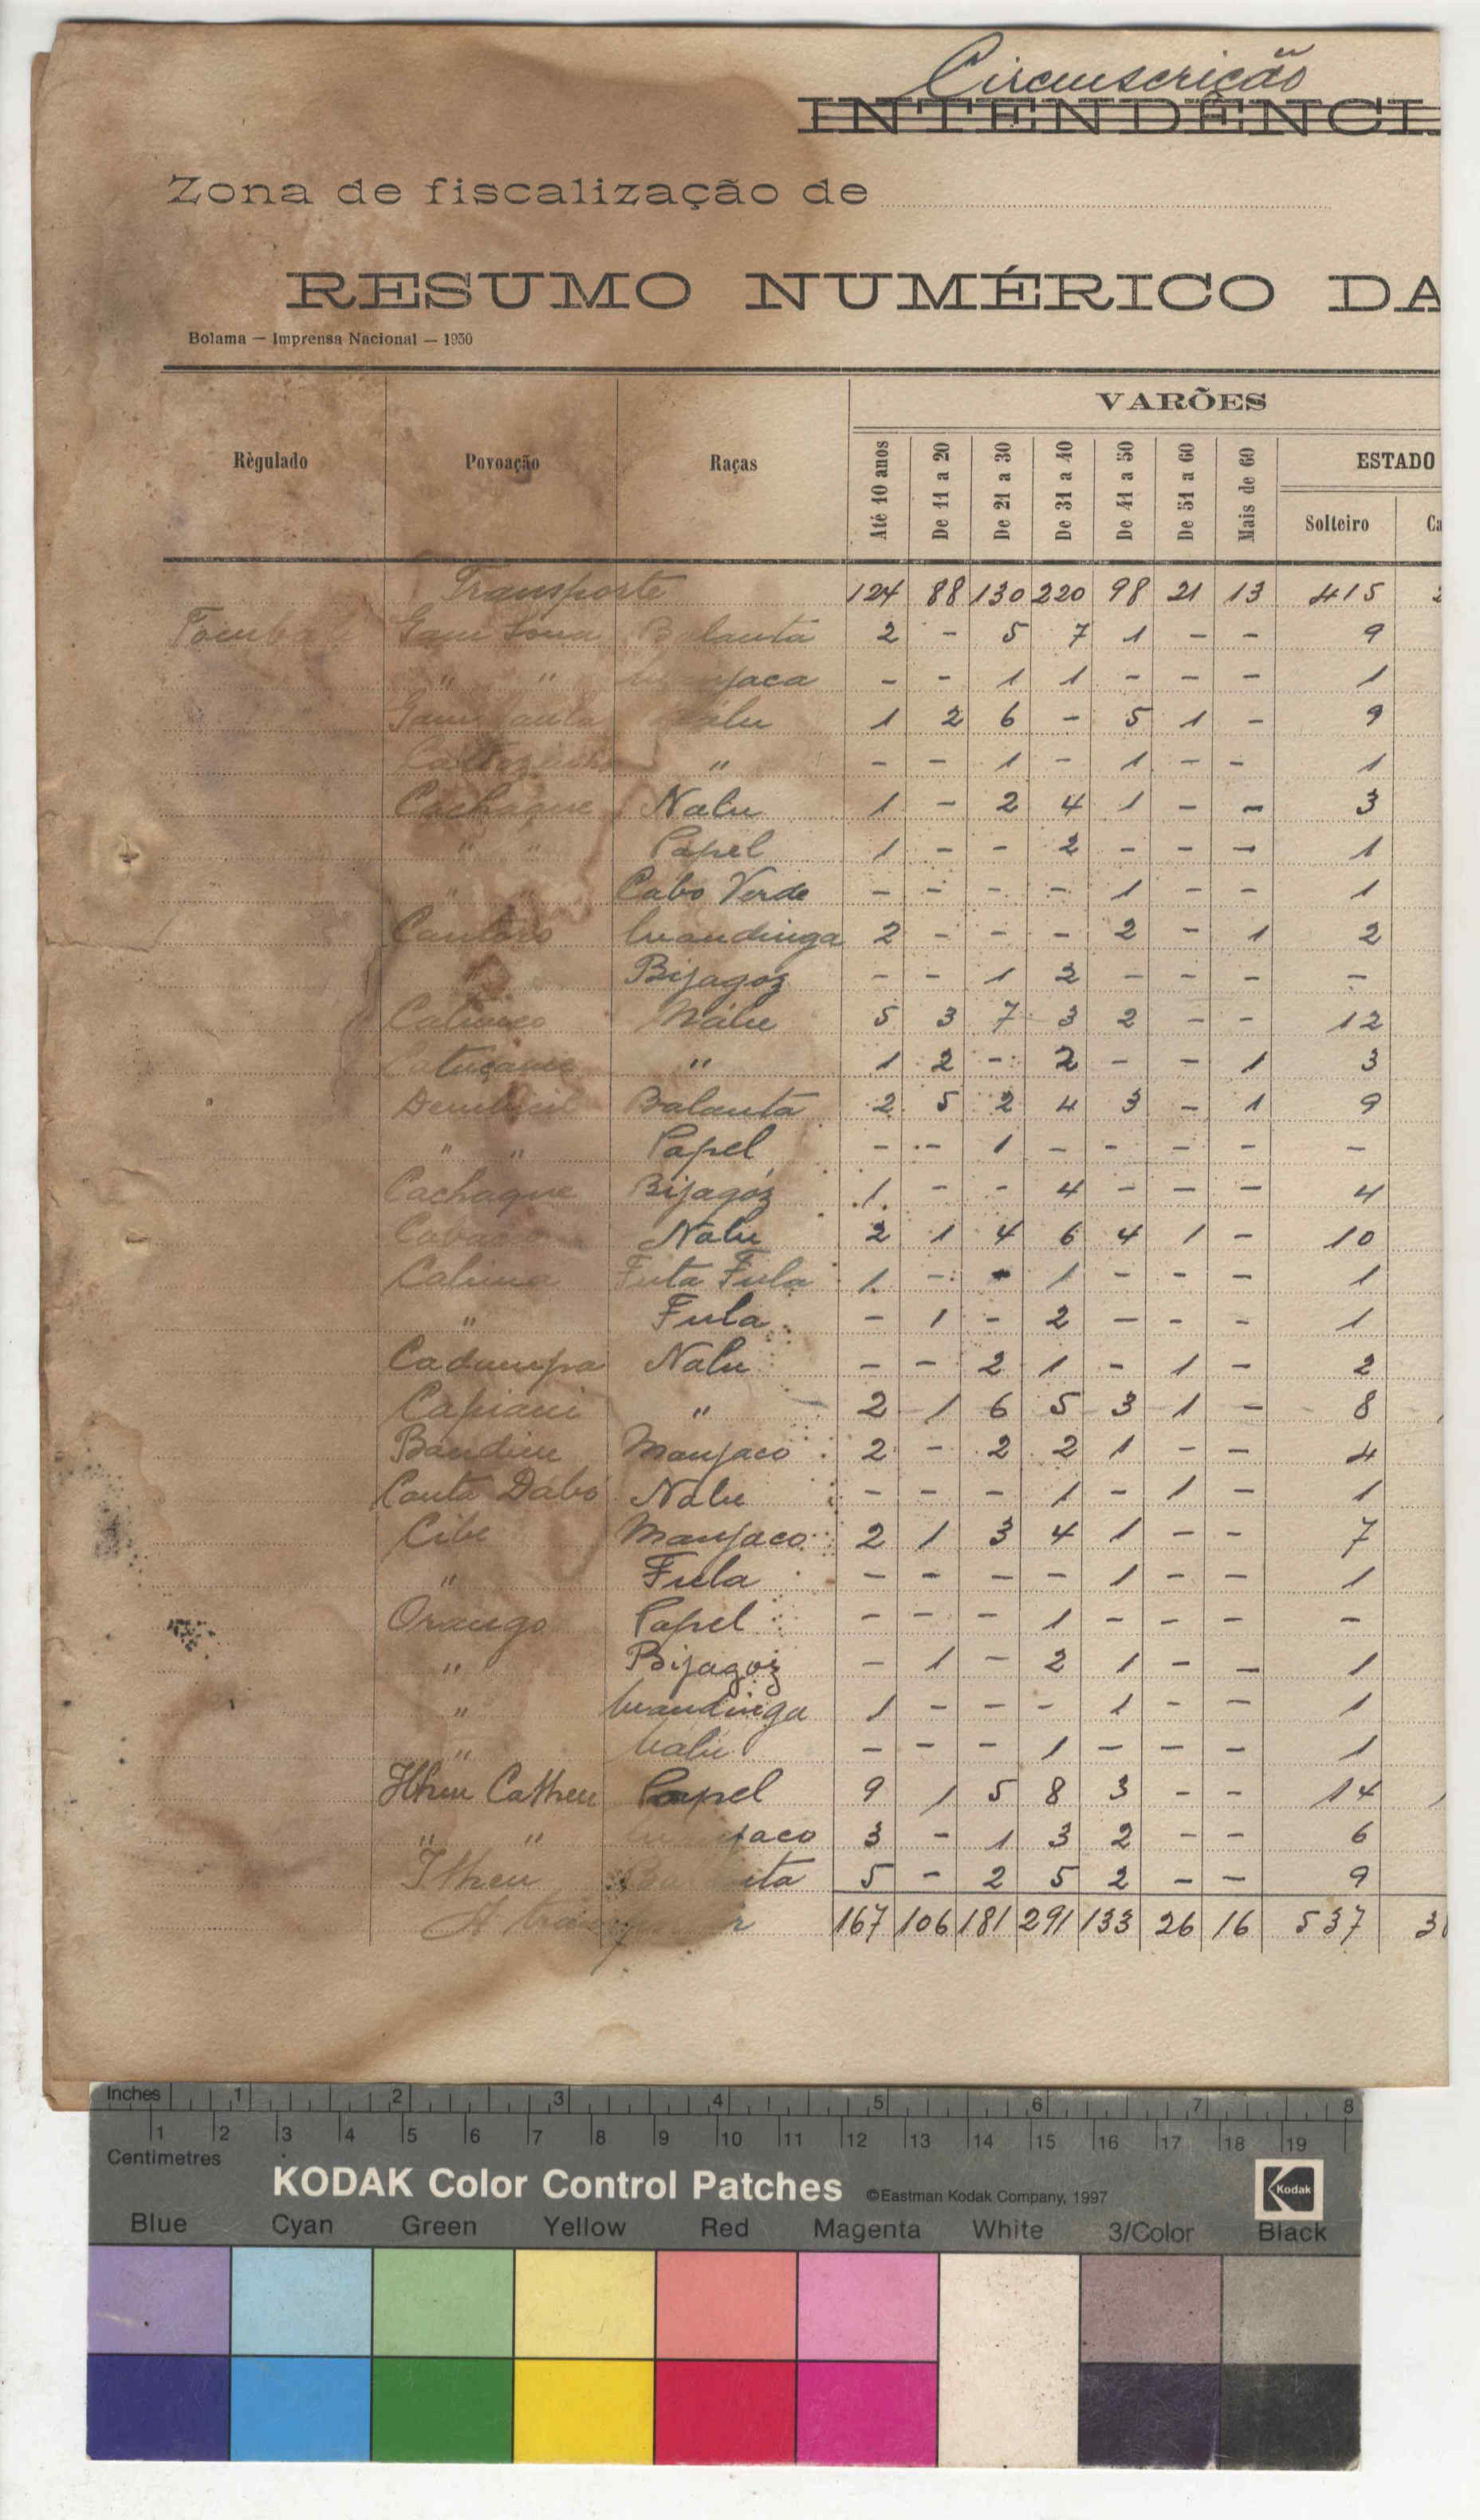 Circunscrição
INTENDÊNCI
Zona de fiscalização de
RESUMO NUMÉRICO DA
Bolama — Imprensa Nacional — 1930
Règulado Povoação Raças VARÕES
Até 10 anos De 11 a 20 De 21 a 30 De 31 a 40 De 41 a 50 De 51 a 60 Mais de 60 ESTADO
Solteiro Ca
Transporte 124 88 130 220 98 21 13 415 2
Balanta 2 - 5 7 1 - - 9
" " Manjaca - - 1 1 - - - 1
Nalu 1 2 6 - 5 1 - 9
" - - 1 - 1 - - 1
Cachaque Nalu 1 - 2 4 1 - - 3
" " Papel 1 - - 2 - - - 1
" " Cabo Verde - - - - 1 - - 1
Mandinga 2 - - - 2 - 1 2
Bijagoz - - 1 2 - - - -
Nalu 5 3 7 3 2 - - 12
" 1 2 - 2 - - 1 3
Balanta 2 5 2 4 3 - 1 9
" " Papel - - 1 - - - - -
Cachaque Bijagóz 1 - - 4 - - - 4
Nalu 2 1 4 6 4 1 - 10
Calima Futa Fula 1 - - 1 - - - 1
" Fula - 1 - 2 - - - 1
Cadumpa Nalu - - 2 1 - 1 - 2
Capiani " 2 1 6 5 3 1 - 8
Bandim Manjaco 2 - 2 2 1 - - 4
Canta Dabó Nalu - - - 1 - 1 - 1
Cibe Manjaco 2 1 3 4 1 - - 7
" Fula - - - - 1 - - 1
Orango Papel - - - 1 - - - -
" Bijagoz - 1 - 2 1 - - 1
" Mandinga 1 - - - 1 - - 1
" Nalu - - - 1 - - - 1
Ilheu Papel 9 1 5 8 3 - - 14
" " jaco 3 - 1 3 2 - - 6
Ilheu 5 - 2 5 2 - - 9
A 167 106 181 291 133 26 16 537 3
Inches 1 2 3 4 5 6 7 8
1 2 3 4 5 6 7 8 9 10 11 12 13 14 15 16 17 18 19
Centimetres
KODAK Color Control Patches ©Eastman Kodak Company, 1997 Kodak
Blue Cyan Green Yellow Red Magenta White 3/Color Black